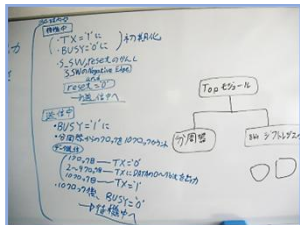 待機中
・TX='1'に
・BUSY='0'に
初期化
・S_SW, resetのかんし
S_SWのNegative Edge
and
reset='0'
→送信中へ
送信中
・BUSY='1'に
・分周器からのクロックを10クロックカウント
1クロック目 — TX='0'
2〜9クロック目 — TXにDATAの0〜7bitを出力
10クロック目 — TX='1'
・10クロック後、BUSY='0'
→待機中へ
Topモジュール
分周器
シフトレジスタ